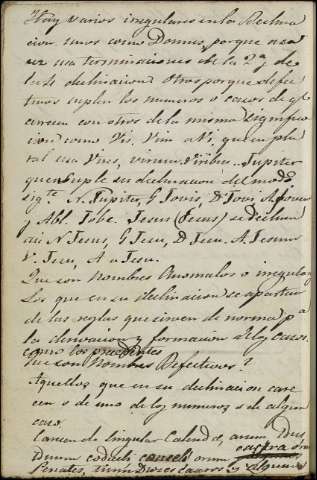 Hay varios irregulares en la Declina
cion, unos como Domus, porque usa
terminaciones de la 2ª y de
la 4ª declinacion. Otros porque defec
tivos suplen los numeros o casos de q.
carecen con otros de la misma significa
cion como Vis, Vim a Vi, que en plu
ral usa Vires, virium Viribus. Jupiter
que suple su declinacion del modo
sigte. N. Jupiter, G. Jovis, D. Jovi A. Jovem
y Abl. Jove. Jesus (Jesus) se declina
asi N. Jesus, G. Jesu, D. Jesu, A. Jesum
V. Jesu, A. a Jesu.
Que son Nombres Anomalos o irregulares
Los que en su declinacion se apartan
de las reglas que sirven de norma pª
la derivacion y formacion de los casos.
como los precedentes
Que son Nombres Defectivos?
Aquellos que en su declinacion care
cen o de uno de los numeros o de algun
caso.
Carecen de singular Calendæ, arum
castra
Penates, tienen casos y algunos